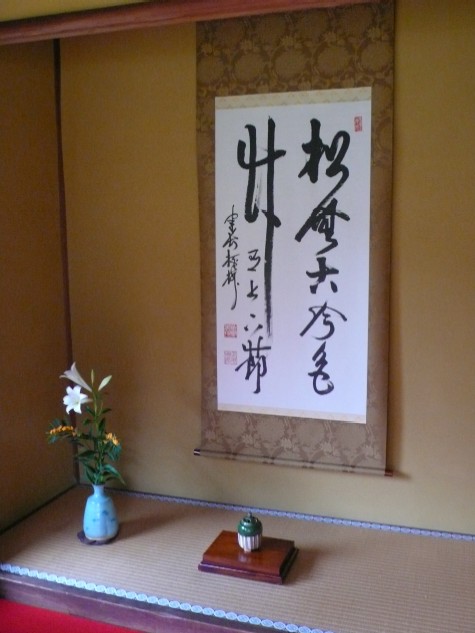 松無古今色
竹有上下節